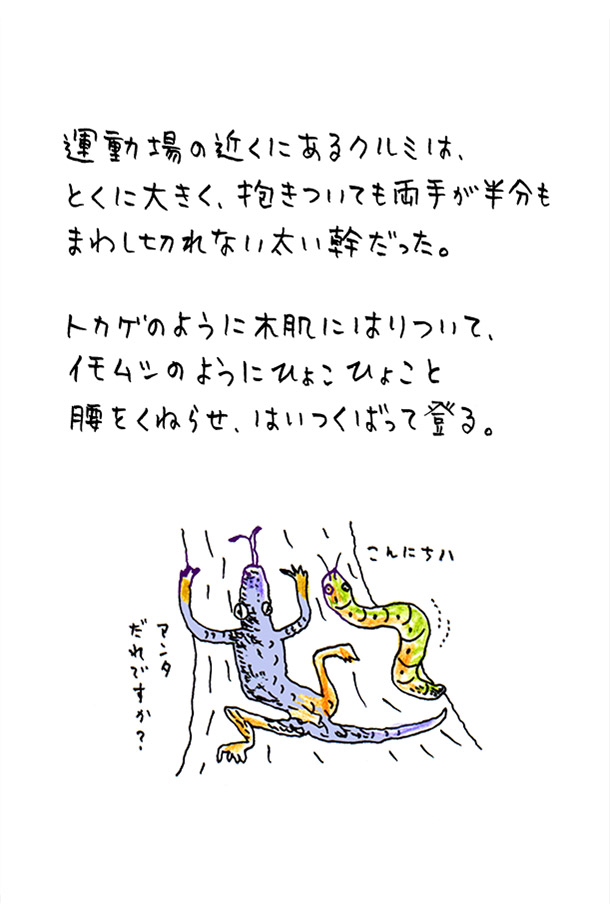 運動場の近くにあるクルミは、
とくに大きく、抱きついても両手が半分も
まわし切れない太い幹だった。
トカゲのように木肌にはりついて、
イモムシのようにひょこひょこと
腰をくねらせ、はいつくばって登る。
こんにちハ
アンタ
だれですか?